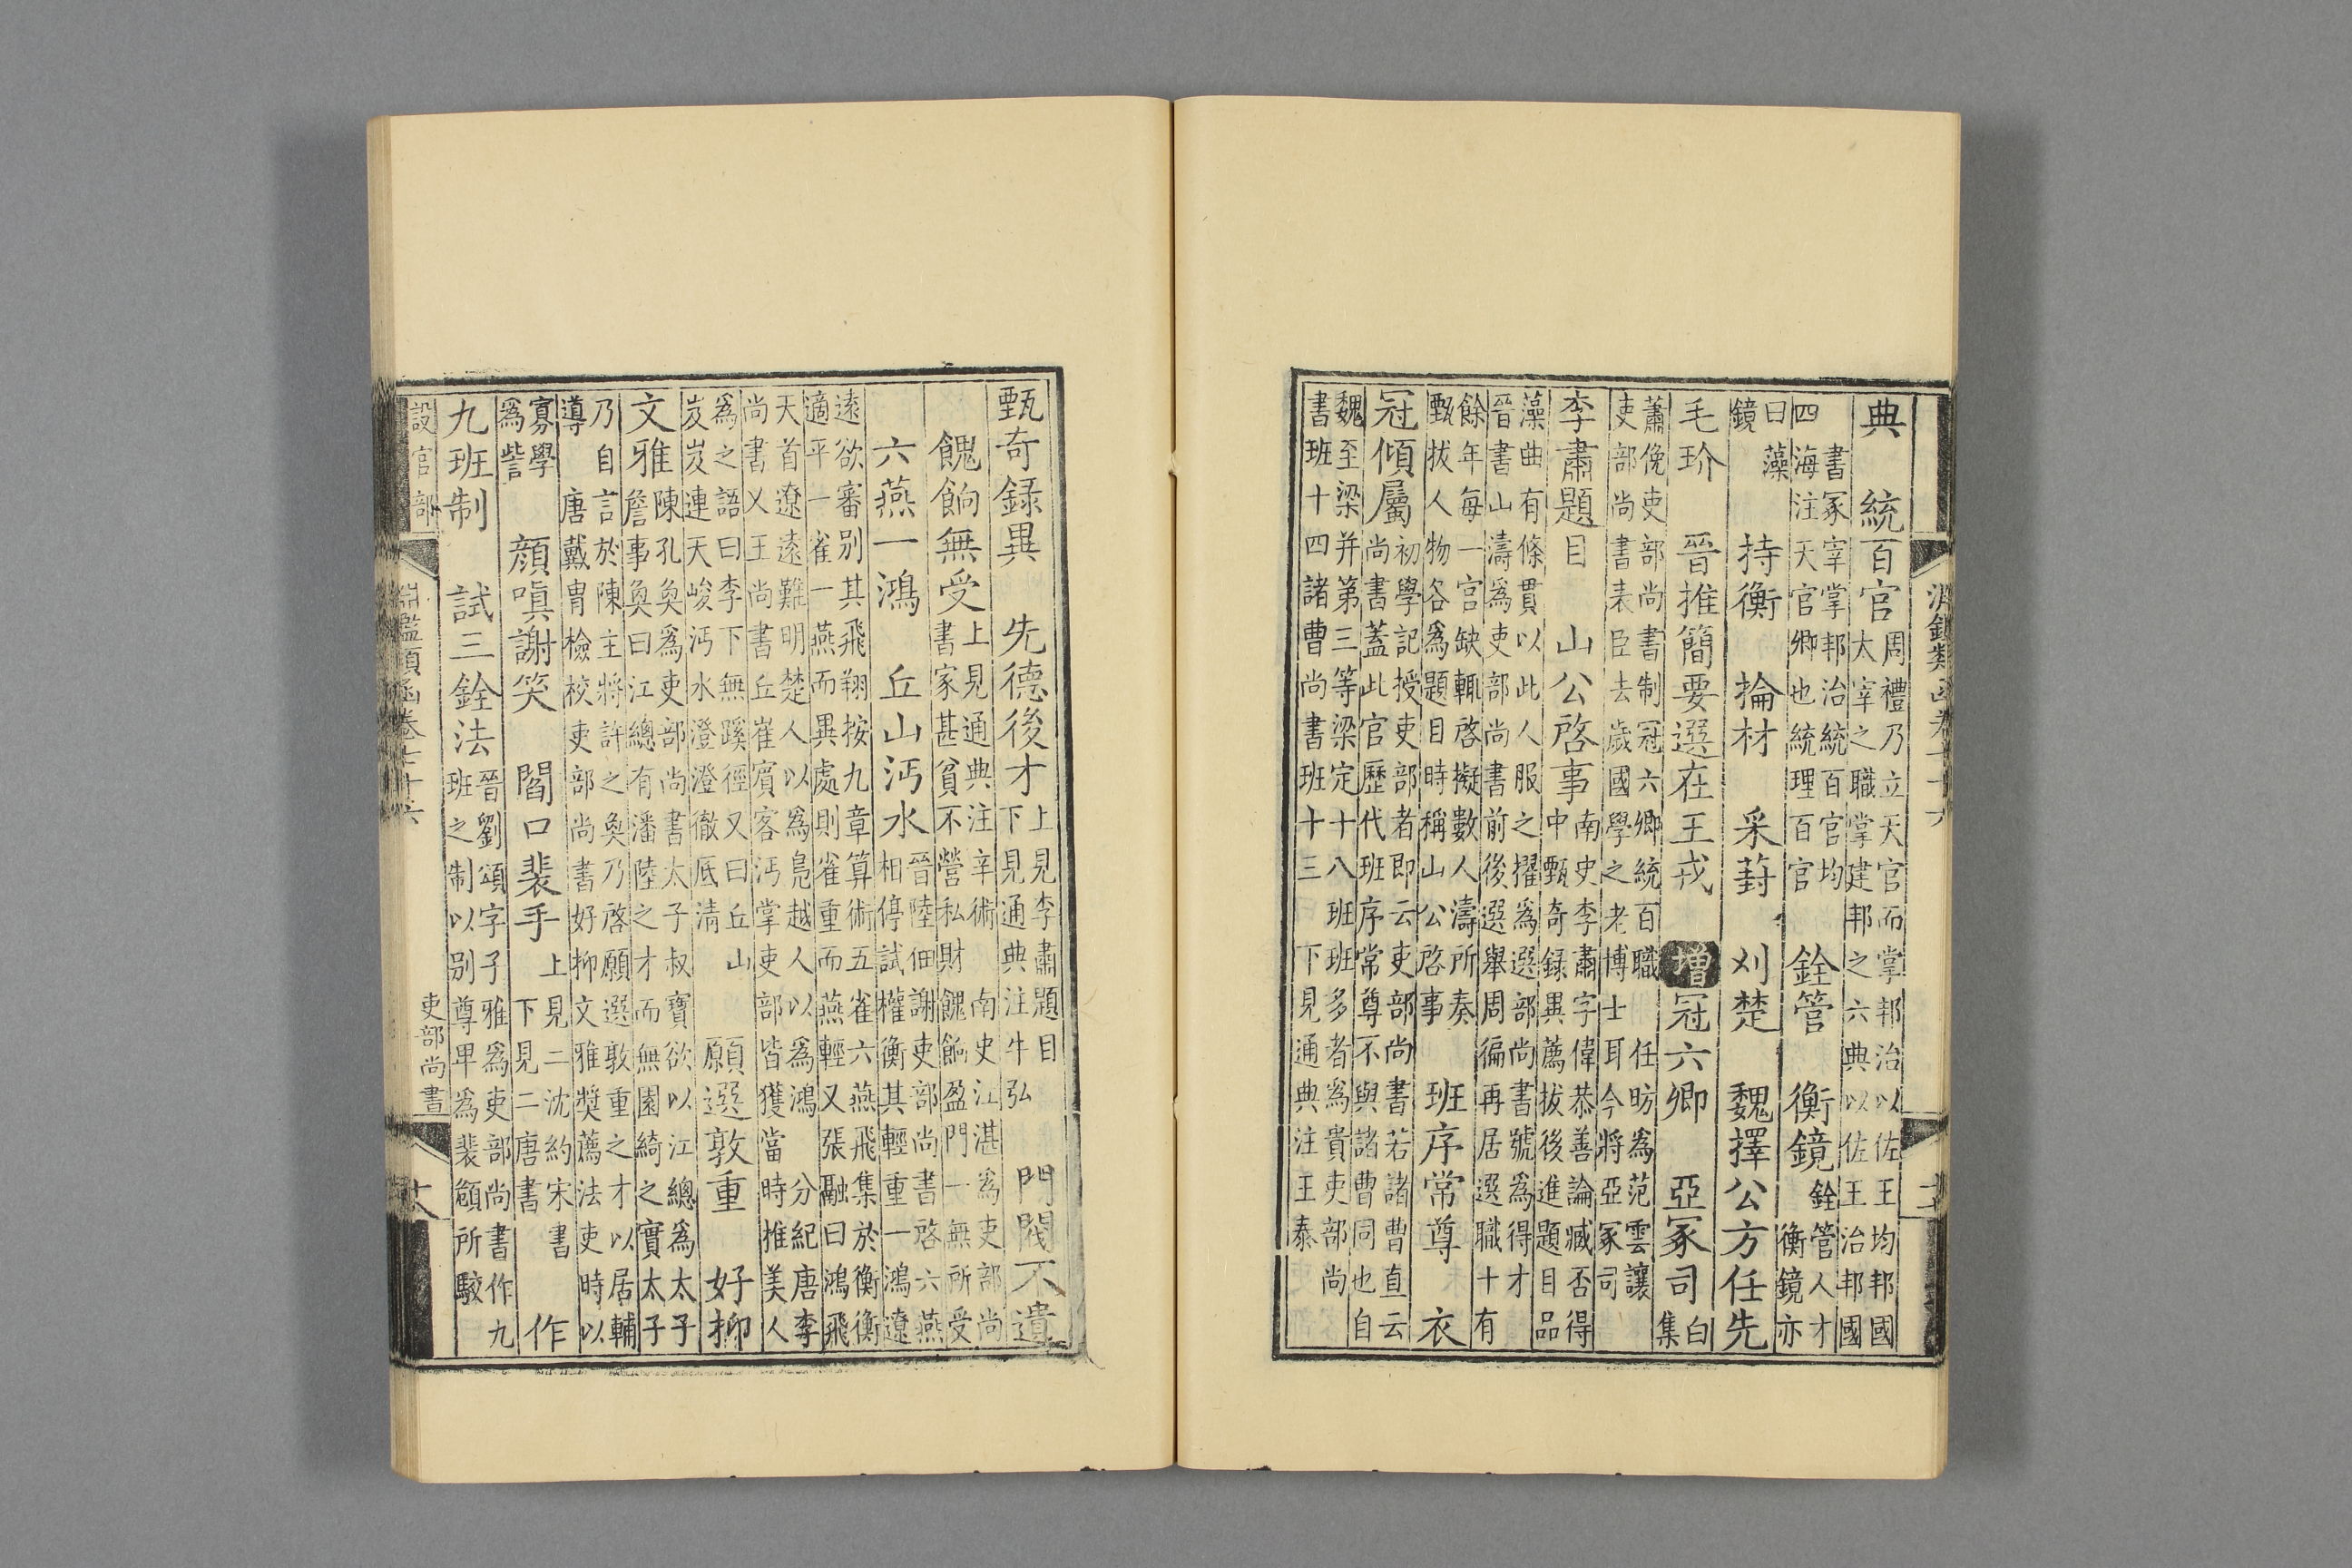 淵鑑類函卷
典　統百官周禮乃立天官而掌邦治以佐王均邦國
太宰之職掌建邦之六典以佐王治邦國
書冢宰掌邦治統百官均
四海注天官卿也統理百官　銓管　衡鏡銓管人才
衡鏡亦
曰藻
鏡　持衡　掄材　采葑　刈楚　魏擇公方任先
毛玠　晉推簡要選在王戎　增冠六卿　亞冢司白
集
蕭俛吏部尚書制冠六卿統百職　任昉爲范雲讓
吏部尚書表臣去歲國學之老博士耳今將亞冢司
李肅題目　山公啓事南史李肅字偉恭善論臧否得
中甄奇録異薦拔後進題目品
藻曲有條貫以此人服之擢爲選部尚書號爲得才
晉書山濤爲吏部尚書前後選舉周徧再居選職十有
餘年每一官缺輒啓擬數人濤所奏
甄拔人物各爲題目時稱山公啓事　班序常尊　衣
冠傾屬初學記授吏部者即云吏部尚書若諸曹直云
尚書蓋此官歷代班序常尊不與諸曹同也自
魏至梁并第三等梁定十八班班多者爲貴吏部尚
書班十四諸曹尚書班十三　下見通典注王泰
甄奇録異　先德後才上見李肅題目
下見通典注牛弘　門閥不遺
餽餉無受上見通典注辛術　南史江湛爲吏部尚
書家甚貧不營私財餽餉盈門一無所受
六燕一鴻　丘山沔水晉陸佃謝吏部尚書啓六燕
相停試權衡其輕重一鴻遼
遠欲審別其飛翔按九章算術五雀六燕飛集於衡衡
適平一雀一燕而異處則雀重而燕輕又張融曰鴻飛
天首遼遠難明楚人以爲鳧越人以爲鴻　分紀唐李
尚書乂王尚書丘崔賓客沔掌吏部皆獲當時推美人
爲之語曰李下無蹊徑又曰丘山
岌岌連天峻沔水澄澄徹底清　願選敦重　好抑
文雅陳孔奐爲吏部尚書太子叔寶欲以江總爲太子
詹事奐曰江總有潘陸之才而無園綺之實太子
乃自言於陳主將許之奐乃啓願選敦重之才以居輔
導　唐戴胄檢校吏部尚書好抑文雅奬薦法吏時以
寡學
爲訾　顔嗔謝笑　閻口裴手上見二沈約宋書
下見二唐書　作
九班制　試三銓法晉劉頌字子雅爲吏部尚書作九
班之制以別尊卑爲裴頠所駮
設官部　淵鑑類函卷七十六　吏部尚書